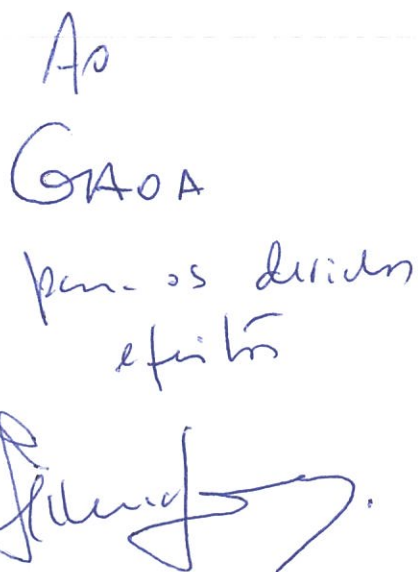 Ao
GAOA
para os devidos
efeitos